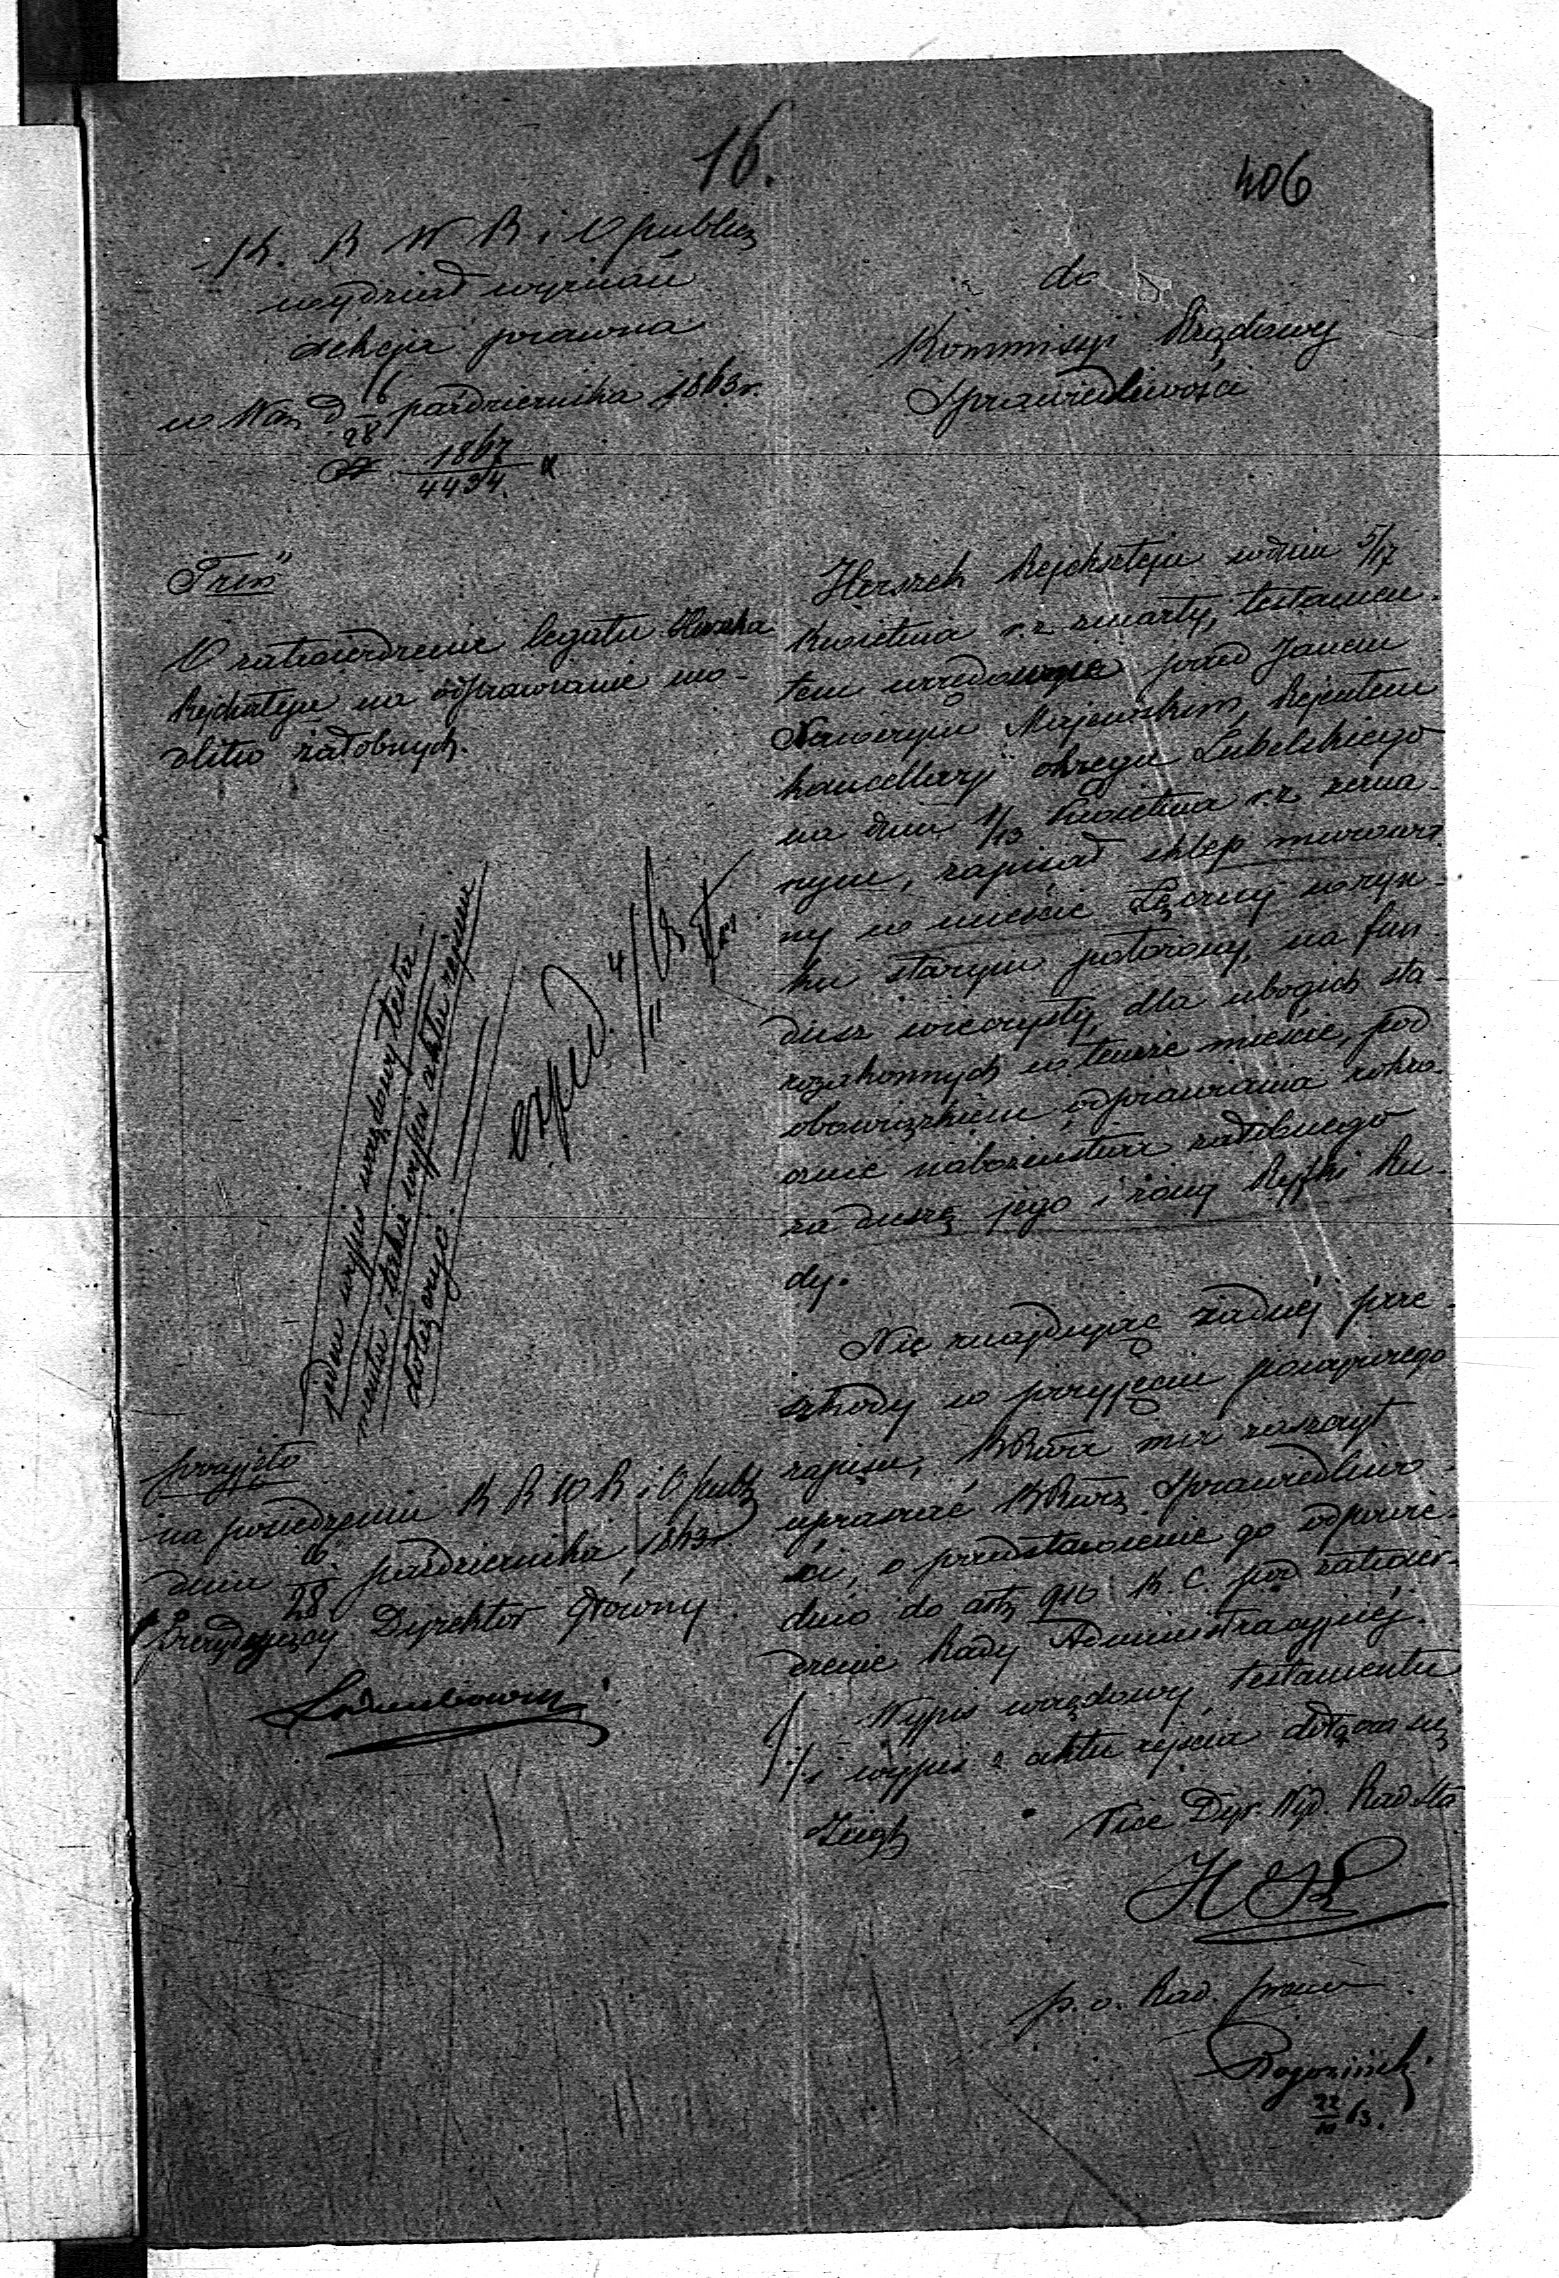 16.
406
K. R W R i O publicz
wydział wyznań
sekcja prawna
w War d 16/28 października 1863 r.
N. 1867/4434
do
Kommisyi Rządowy
Sprawiedliwości
Treść
O zatwierdzenie legatu Herszka
Rejchsztejn na odprawianie mo-
dlitw żałobnych.
Herszek Rejchsztejn w dniu 5/17
Kwietnia r. z. zmarły, testamen-
tem urzędownie przed Janem
Nawarym Majewskim, Rejentem
kancellaryi okręgu Lubelskiego
na dniu 1/13 Kwietnia r. z. zezna-
nym, zapisał sklep murowa-
ny w mieście Łęczny w ryn-
ku starym położony, na fun-
dusz wieczysty, dla ubogich sta-
rozakonnych w temże mieście, pod
obowiązkiem odprawiania coro-
cznie nabożeństwa żałobnego
za duszę jego i żony Ryfki Ru-
dy.
Nie znajdując żadnéj prze-
szkody w przyjęciu powyższego
zapisu, KRząd ma zaszczyt
upraszać KRząd. Sprawiedliwo-
ści, o przedstawienie go odpowie-
dnio do art. 910 K. C. pod zatwier-
dzenie Rady Administracyjnéj.
Wypis urzędowy testamentu
i wypis z aktu zejścia dołącza się
Vice Dyr. Wyd. Rad. Sta
p. o. Rad. praw
Rogoziński
22/10 63.
jeden wypis urzędowy testa-
mentu i takiż wypis aktu zejścia
dołączyć.
exped. 4/11 63
przyjęto
na posiedzeniu K R W R i O publ
dnia 16/28 października 1863 r.
Prezydujący Dyrektor Główny